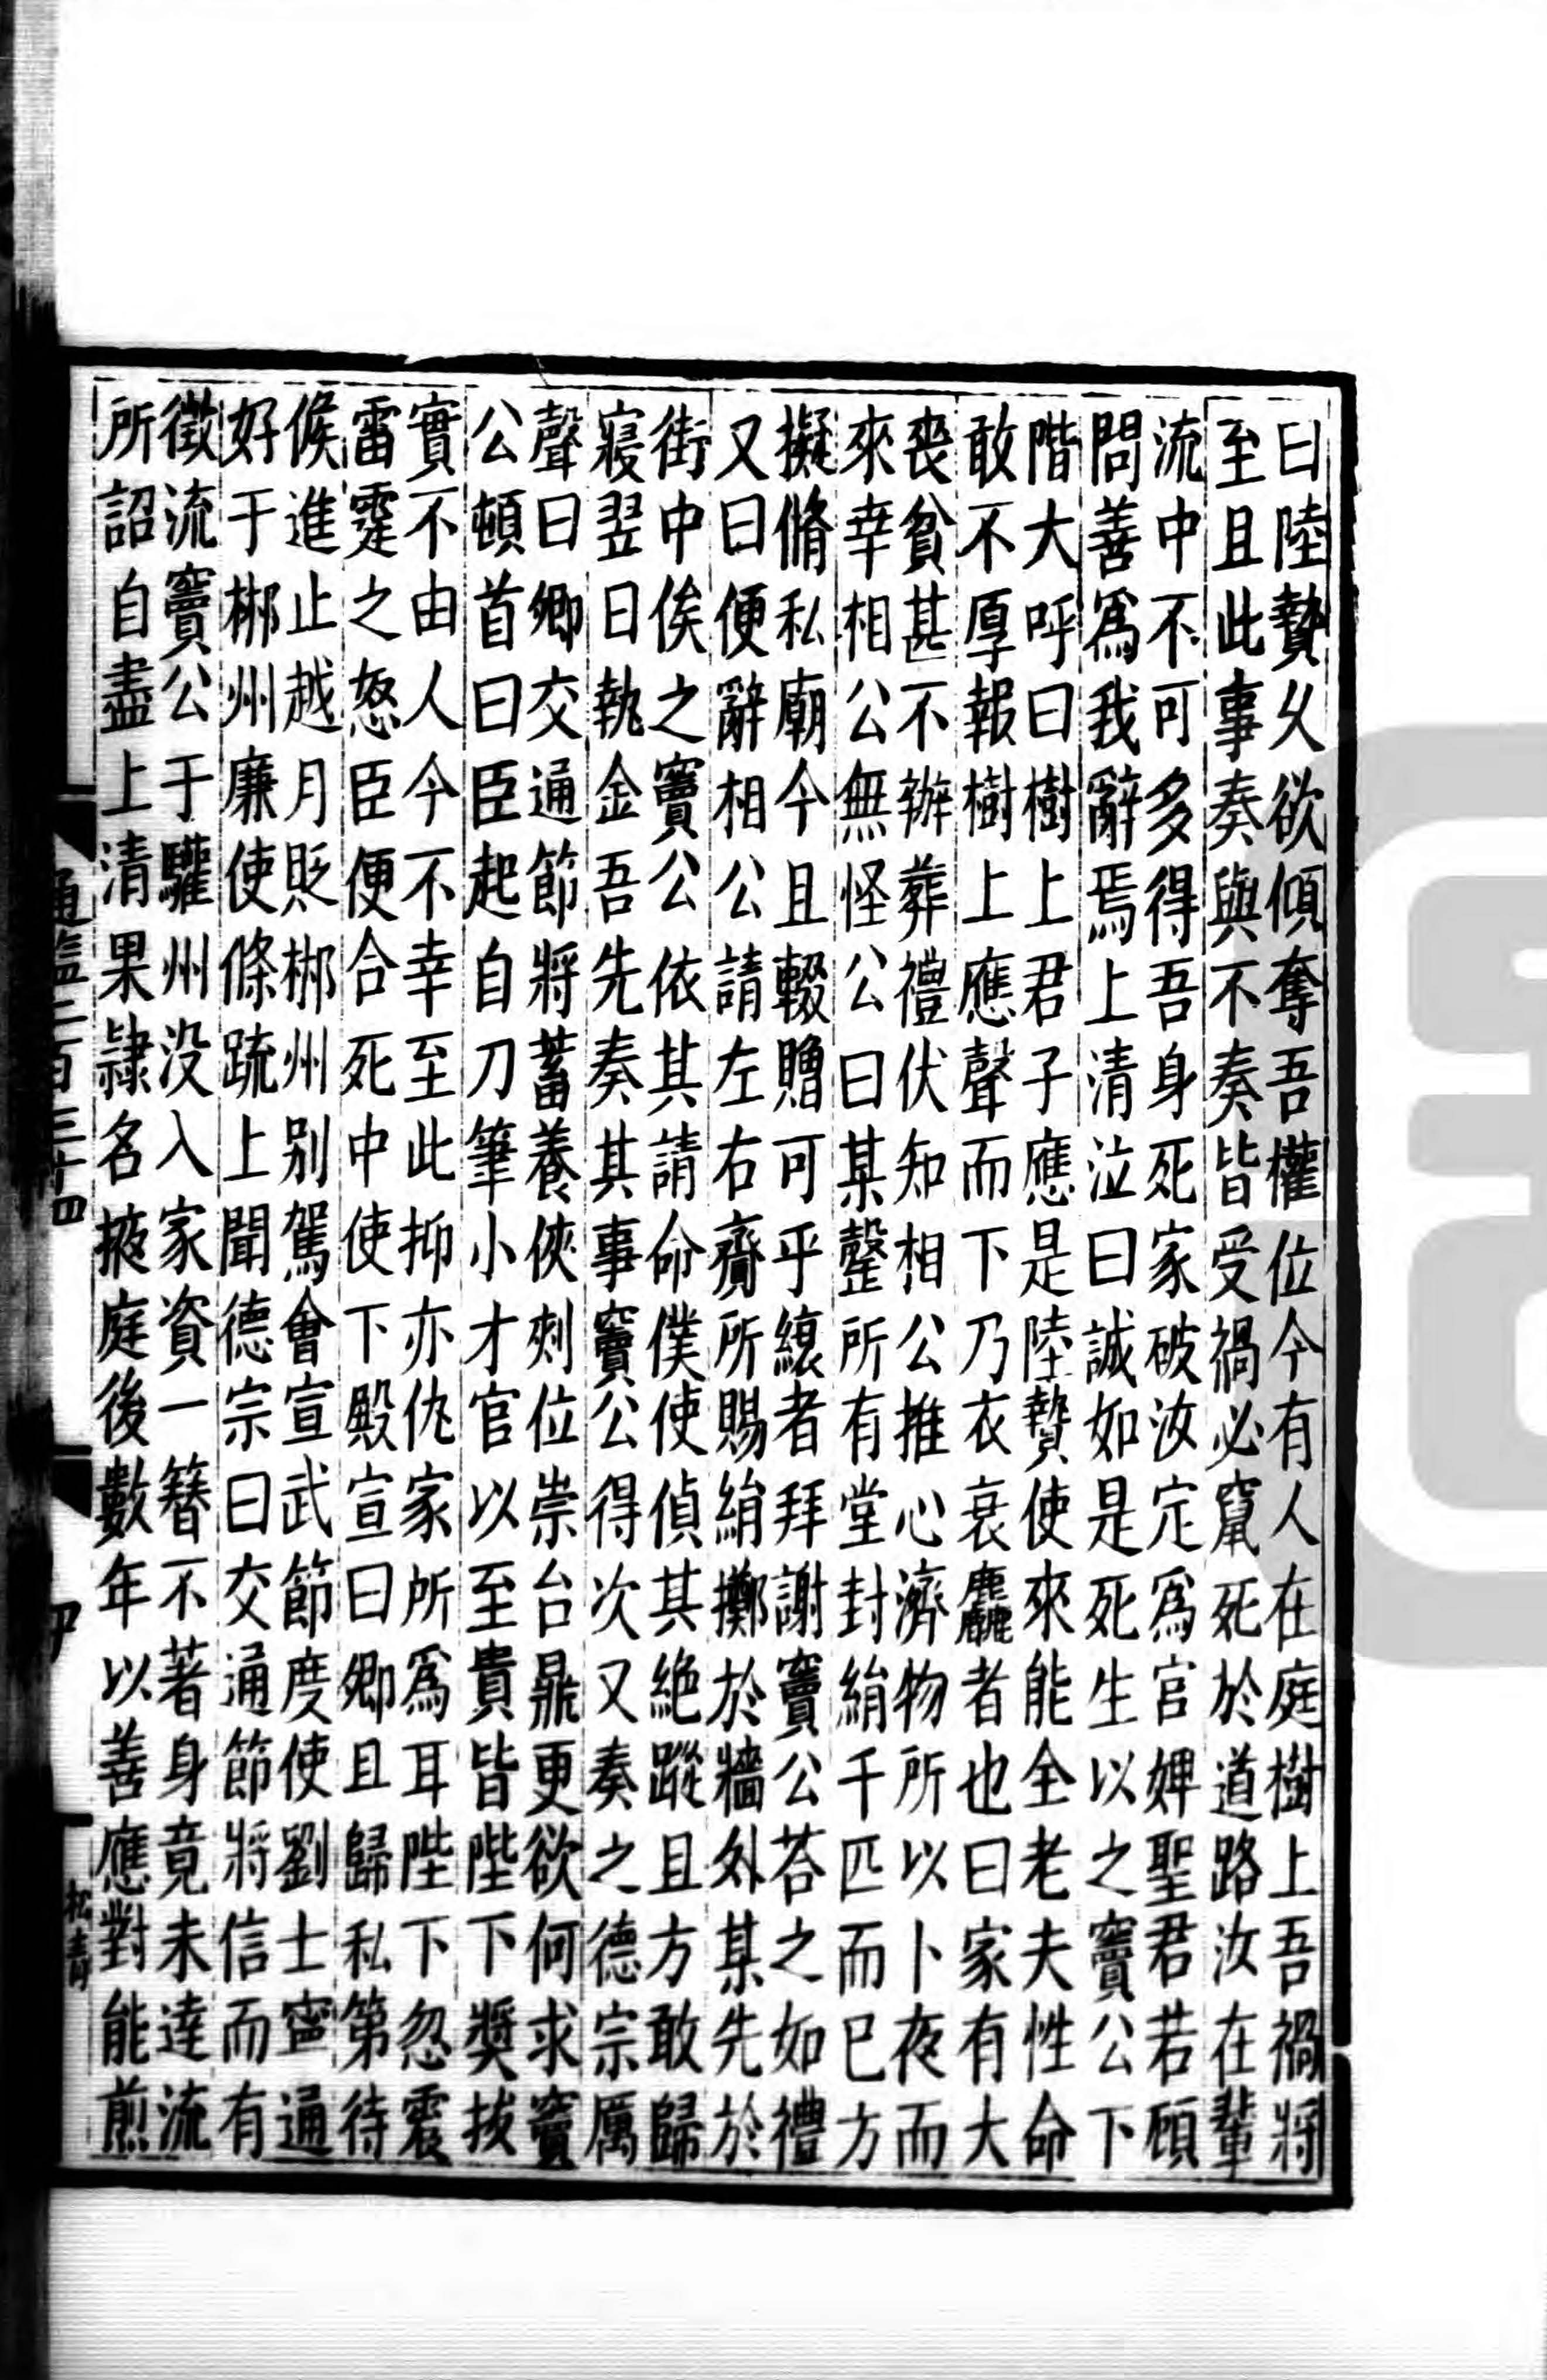 曰陸贄乆欲傾奪吾權位今有人在庭樹上吾禍將
至且此事奏與不奏皆受禍必竄死於道路汝在輩
流中不可多得吾身死家破汝定爲官婢聖君若顧
問善爲我辭焉上清泣曰誠如是死生以之竇公下
階大呼曰樹上君子應是陸贄使來能全老夫性命
敢不厚報樹上應聲而下乃衣衰麤者也曰家有大
喪貧甚不辦葬禮伏知相公推心濟物所以卜夜而
來幸相公無怪公曰某罄所有堂封絹千匹而已方
擬脩私廟今且輟贈可乎縗者拜謝竇公荅之如禮
又曰便辭相公請左右齎所賜絹擲於牆外某先於
街中俟之竇公依其請命僕使偵其絶蹤且方敢歸
寢翌日執金吾先奏其事竇公得次又奏之德宗厲
聲曰卿交通節將蓄養俠刺位崇台鼎更欲何求竇
公頓首曰臣起自刀筆小才官以至貴皆陛下獎拔
實不由人今不幸至此抑亦仇家所爲耳陛下忽震
雷霆之怒臣便合死中使下殿宣曰卿且歸私第待
候進止越月貶郴州别駕會宣武節度使劉士寧通
好于郴州廉使條疏上聞德宗曰交通節將信而有
徵流竇公于驩州没入家資一簪不著身竟未達流
所詔自盡上清果隷名掖庭後數年以善應對能煎